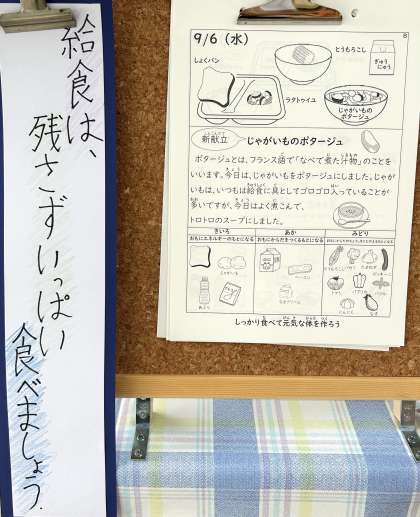 給食は、
残さずいっぱい
食べましょう.
8
9/6（水）
しょくパン
とうもろこし
ぎゅう
にゅう
ラタトゥイユ
じゃがいもの
ポタージュ
新献立
じゃがいものポタージュ
ポタージュとは、フランス語で「なべで煮た汁物」のことを
いいます。今日は、じゃがいもをポタージュにしました。じゃが
いもは、いつもは給食に具としてゴロゴロ入っていることが
多いですが、今日はよく煮こんで、
トロトロのスープにしました。
きいろ
あか
みどり
おもにエネルギーのもとになる
おもにからだをつくるもとになる
しっかり食べて元気な体を作ろう